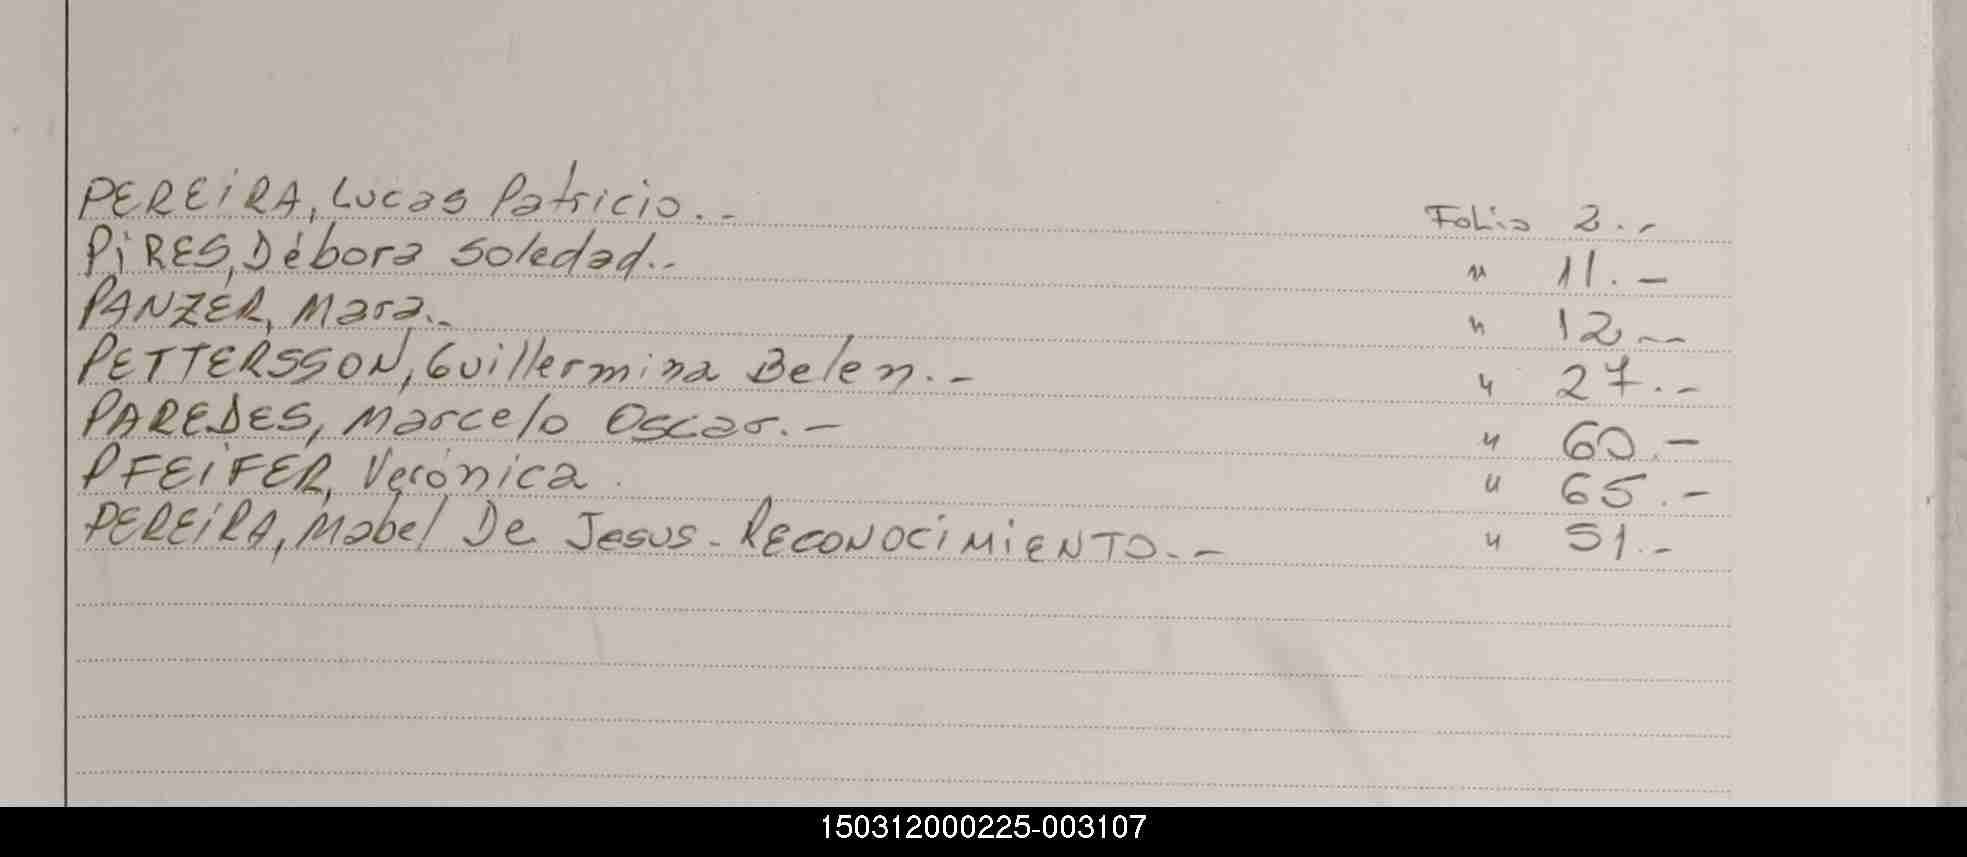 PEREIRA, Lucas Patricio.- Folio 2.-
PIRES, Débora Soledad.- " 11.-
PANZER, Mara.- " 12.-
PETTERSSON, Guillermina Belen.- " 27.-
PAREDES, Marcelo Oscar.- " 60.-
PFEIFER, Verónica. " 65.-
PEREIRA, Mabel De Jesus - RECONOCIMIENTO.- " 51.-
150312000225-003107